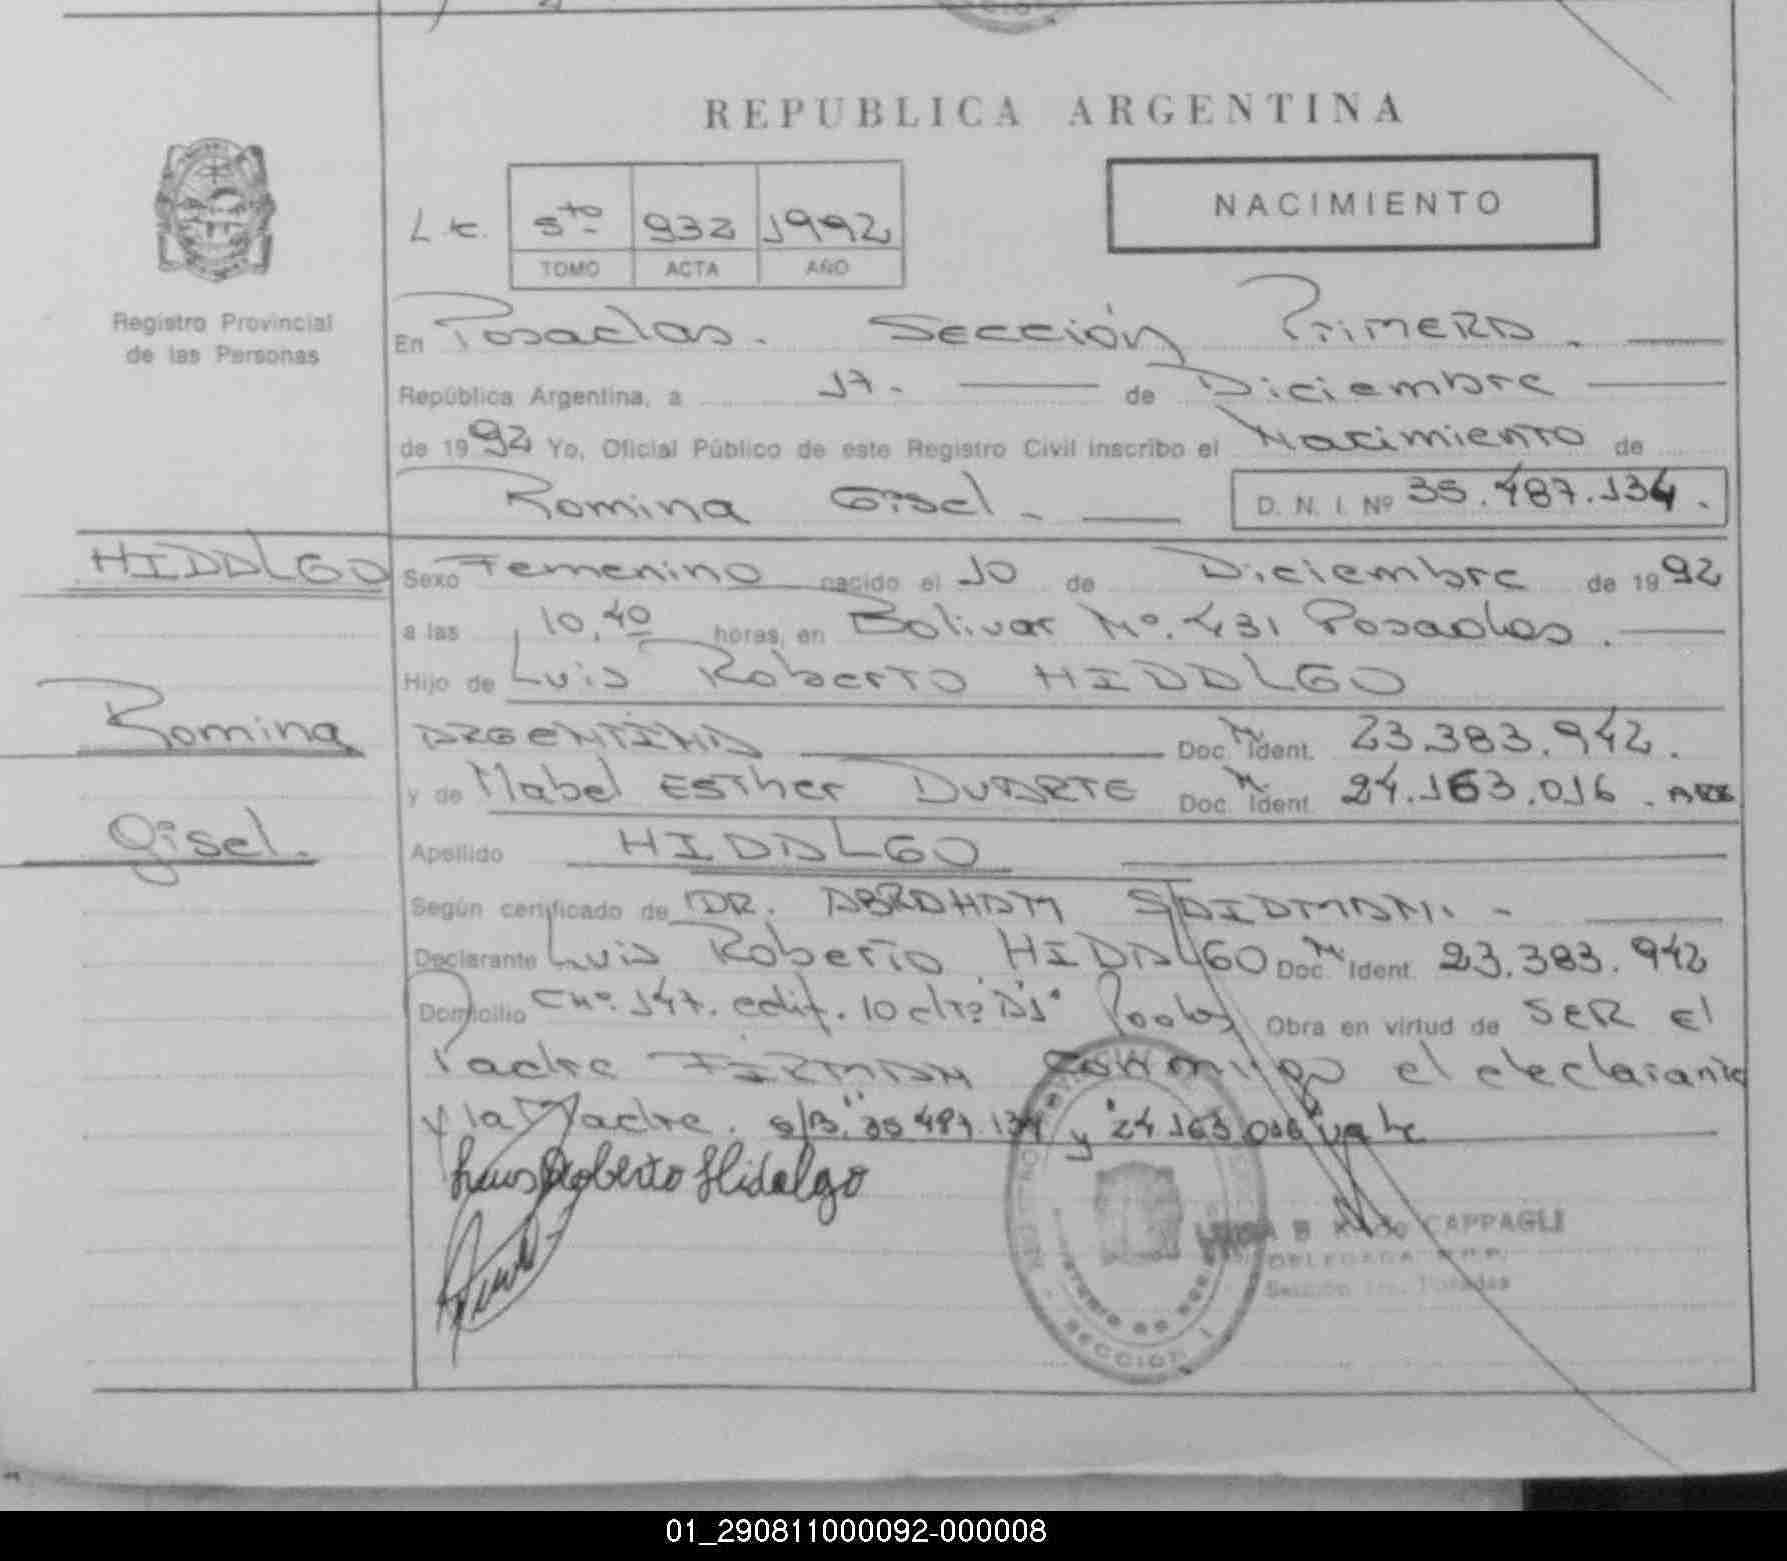 REPUBLICA ARGENTINA
NACIMIENTO
5to 932 1992
TOMO ACTA AÑO
Registro Provincial
de las Personas
En Posadas. Sección Primera.
República Argentina, a 17. de Diciembre
de 1992 Yo, Oficial Público de este Registro Civil inscribo el Nacimiento de
Romina Gisel. D. N. I. Nº 35.487.134.
HIDALGO
Romina
Gisel.
Sexo Femenino nacido el 10 de Diciembre de 1992
a las 10,40 horas, en Bolivar Nº. 431 Posadas.
Hijo de Luis Roberto HIDALGO
ARGENTINA Doc. N Ident. 23.383.942.
y de Mabel Esther DUARTE Doc. N Ident. 24.163.016. ARG
Apellido HIDALGO
Según certificado de DR. ABRAHAM SAIDMAN.-
Declarante Luis Roberto HIDALGO Doc. N Ident. 23.383.942
Domicilio CHº. 147. edif. 10 dto Obra en virtud de SER el
Padre FIRMAN conmigo el declarante
y la Madre. s/B. "35 487.134 y 24.163.016 vale
Luis Roberto Hidalgo
CAPPAGLI
DELEGADA
Sección 1ra. Posadas
SECCION 1
01_290811000092-000008